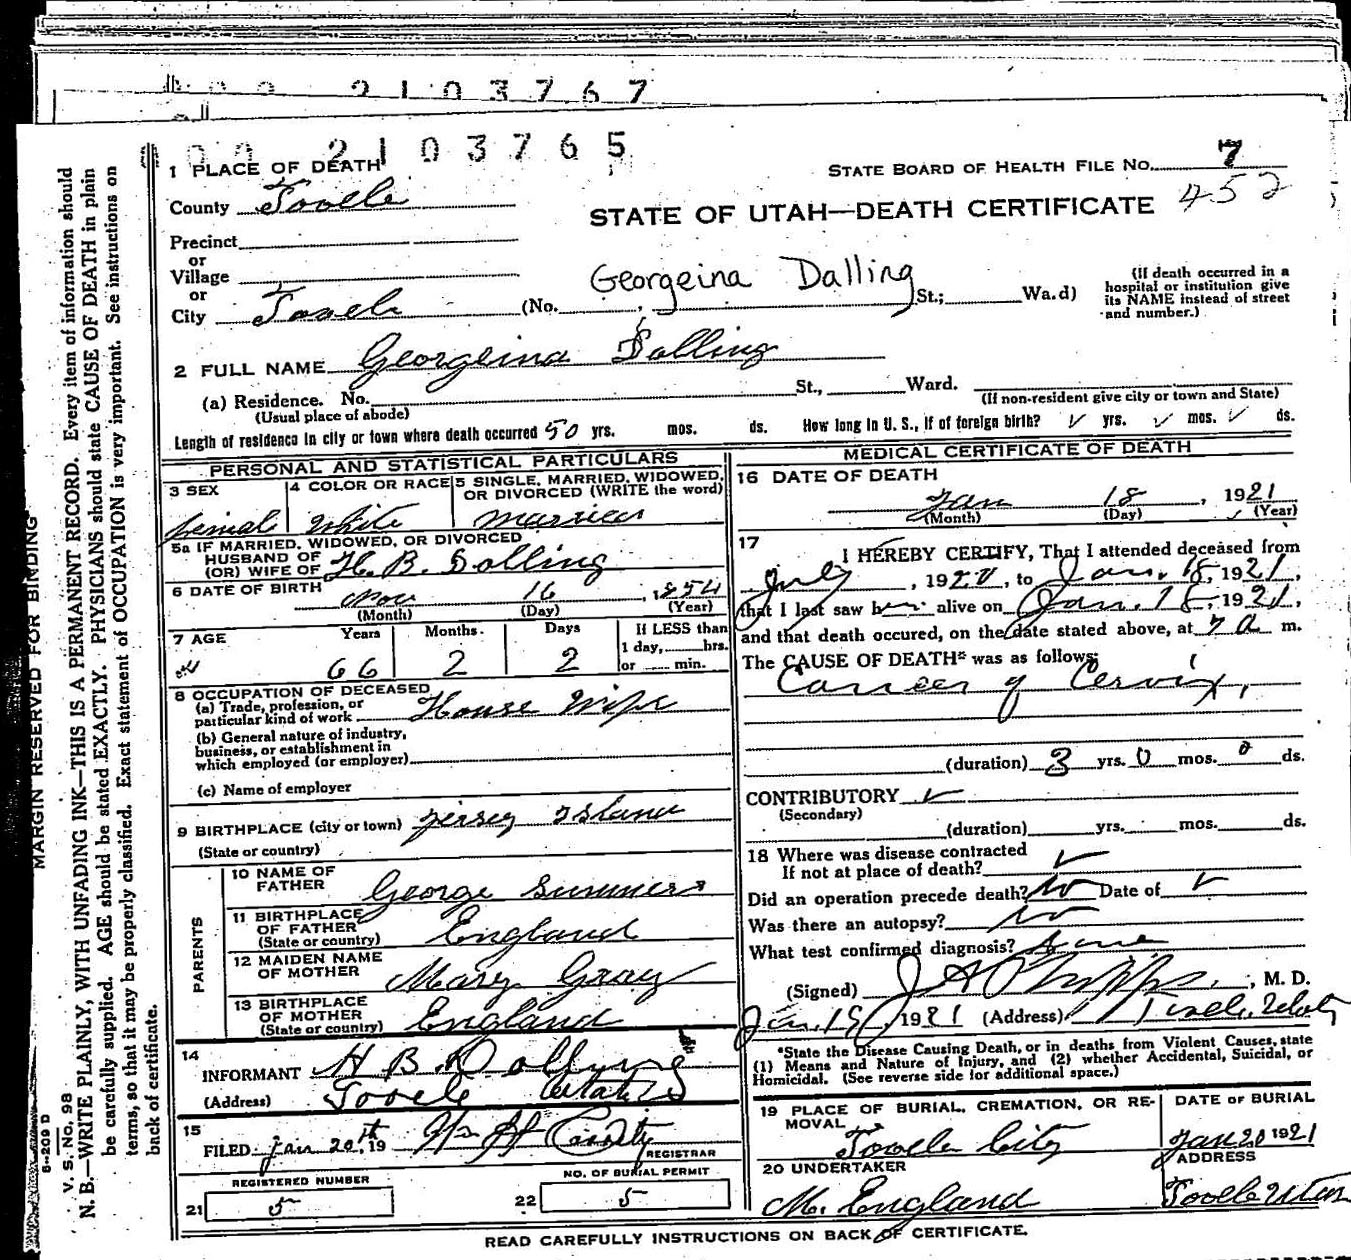 2103767
00 2103765
1 PLACE OF DEATH
STATE BOARD OF HEALTH FILE NO. 7
County Tooele
452
STATE OF UTAH—DEATH CERTIFICATE
Precinct
or
Village
or
City Tooele (No. , St.; Wa.d)
Georgeina Dalling
(If death occurred in a
hospital or institution give
its NAME instead of street
and number.)
2 FULL NAME Georgeina Dalling
(a) Residence. No. St., Ward.
(Usual place of abode)
(If non-resident give city or town and State)
Length of residence in city or town where death occurred 50 yrs. mos. ds. How long in U. S., if of foreign birth? ✓ yrs. ✓ mos. ✓ ds.
PERSONAL AND STATISTICAL PARTICULARS
3 SEX
Female
4 COLOR OR RACE
White
5 SINGLE, MARRIED, WIDOWED,
OR DIVORCED (WRITE the word)
Married
5a IF MARRIED, WIDOWED, OR DIVORCED
HUSBAND OF
(OR) WIFE OF H. B. Dalling
6 DATE OF BIRTH
Nov 16, 1854
(Month) (Day) (Year)
7 AGE Years Months Days
66 2 2
If LESS than
1 day, hrs.
or min.
8 OCCUPATION OF DECEASED
(a) Trade, profession, or
particular kind of work House Wife
(b) General nature of industry,
business, or establishment in
which employed (or employer)
(c) Name of employer
9 BIRTHPLACE (city or town) Jersey Island
(State or country)
PARENTS
10 NAME OF
FATHER George Summers
11 BIRTHPLACE
OF FATHER
(State or country) England
12 MAIDEN NAME
OF MOTHER Mary Gray
13 BIRTHPLACE
OF MOTHER
(State or country) England
14
INFORMANT H B. Dalling
(Address) Tooele Utah
15
FILED Jan 20th, 19
REGISTRAR
REGISTERED NUMBER
21 5
NO. OF BURIAL PERMIT
22 5
MEDICAL CERTIFICATE OF DEATH
16 DATE OF DEATH
Jan 18, 1921
(Month) (Day) (Year)
17
I HEREBY CERTIFY, That I attended deceased from
July, 1920, to Jan. 18, 1921,
that I last saw her alive on Jan. 18, 1921,
and that death occured, on the date stated above, at 7 a m.
The CAUSE OF DEATH* was as follows:
Cancer of Cervix,
(duration) 3 yrs. 0 mos. 0 ds.
CONTRIBUTORY ✓
(Secondary)
(duration) yrs. mos. ds.
18 Where was disease contracted
If not at place of death? ✓
Did an operation precede death? No Date of ✓
Was there an autopsy? No
What test confirmed diagnosis?
(Signed) J A Phipps, M. D.
Jan. 19, 1921 (Address) Tooele, Utah
*State the Disease Causing Death, or in deaths from Violent Causes, state
(1) Means and Nature of Injury, and (2) whether Accidental, Suicidal, or
Homicidal. (See reverse side for additional space.)
19 PLACE OF BURIAL, CREMATION, OR RE-
MOVAL
Tooele City
DATE OF BURIAL
Jan 20 1921
20 UNDERTAKER
M. England
ADDRESS
Tooele Utah
READ CAREFULLY INSTRUCTIONS ON BACK OF CERTIFICATE.
MARGIN RESERVED FOR BINDING
V. S. No. 98
N. B.—WRITE PLAINLY, WITH UNFADING INK—THIS IS A PERMANENT RECORD. Every item of information should
be carefully supplied. AGE should be stated EXACTLY. PHYSICIANS should state CAUSE OF DEATH in plain
terms, so that it may be properly classified. Exact statement of OCCUPATION is very important. See instructions on
back of certificate.